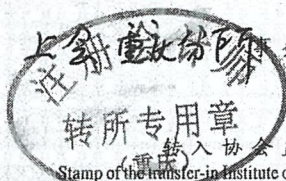 上会 重庆分所
注册
转所专用章
(重庆)
转入协会
Stamp of the transfer-in Institute o